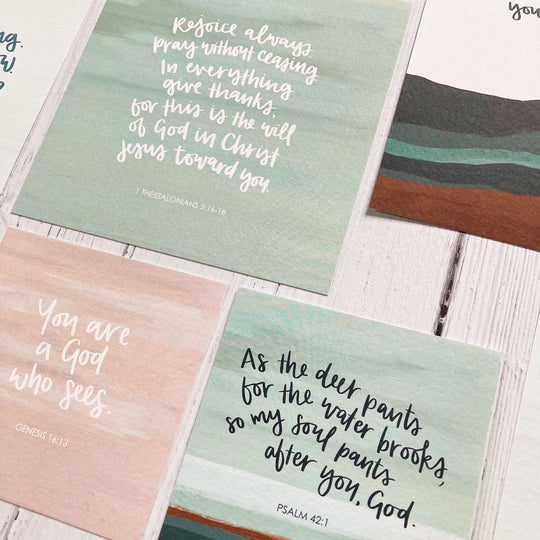 Rejoice always
pray without ceasing.
In everything
give thanks,
for this is the will
of God in Christ
Jesus toward you.
1 THESSALONIANS 5:16-18
you
You are
a God
who sees.
GENESIS 16:13
As the deer pants
for the water brooks,
so my soul pants
after you, God.
PSALM 42:1